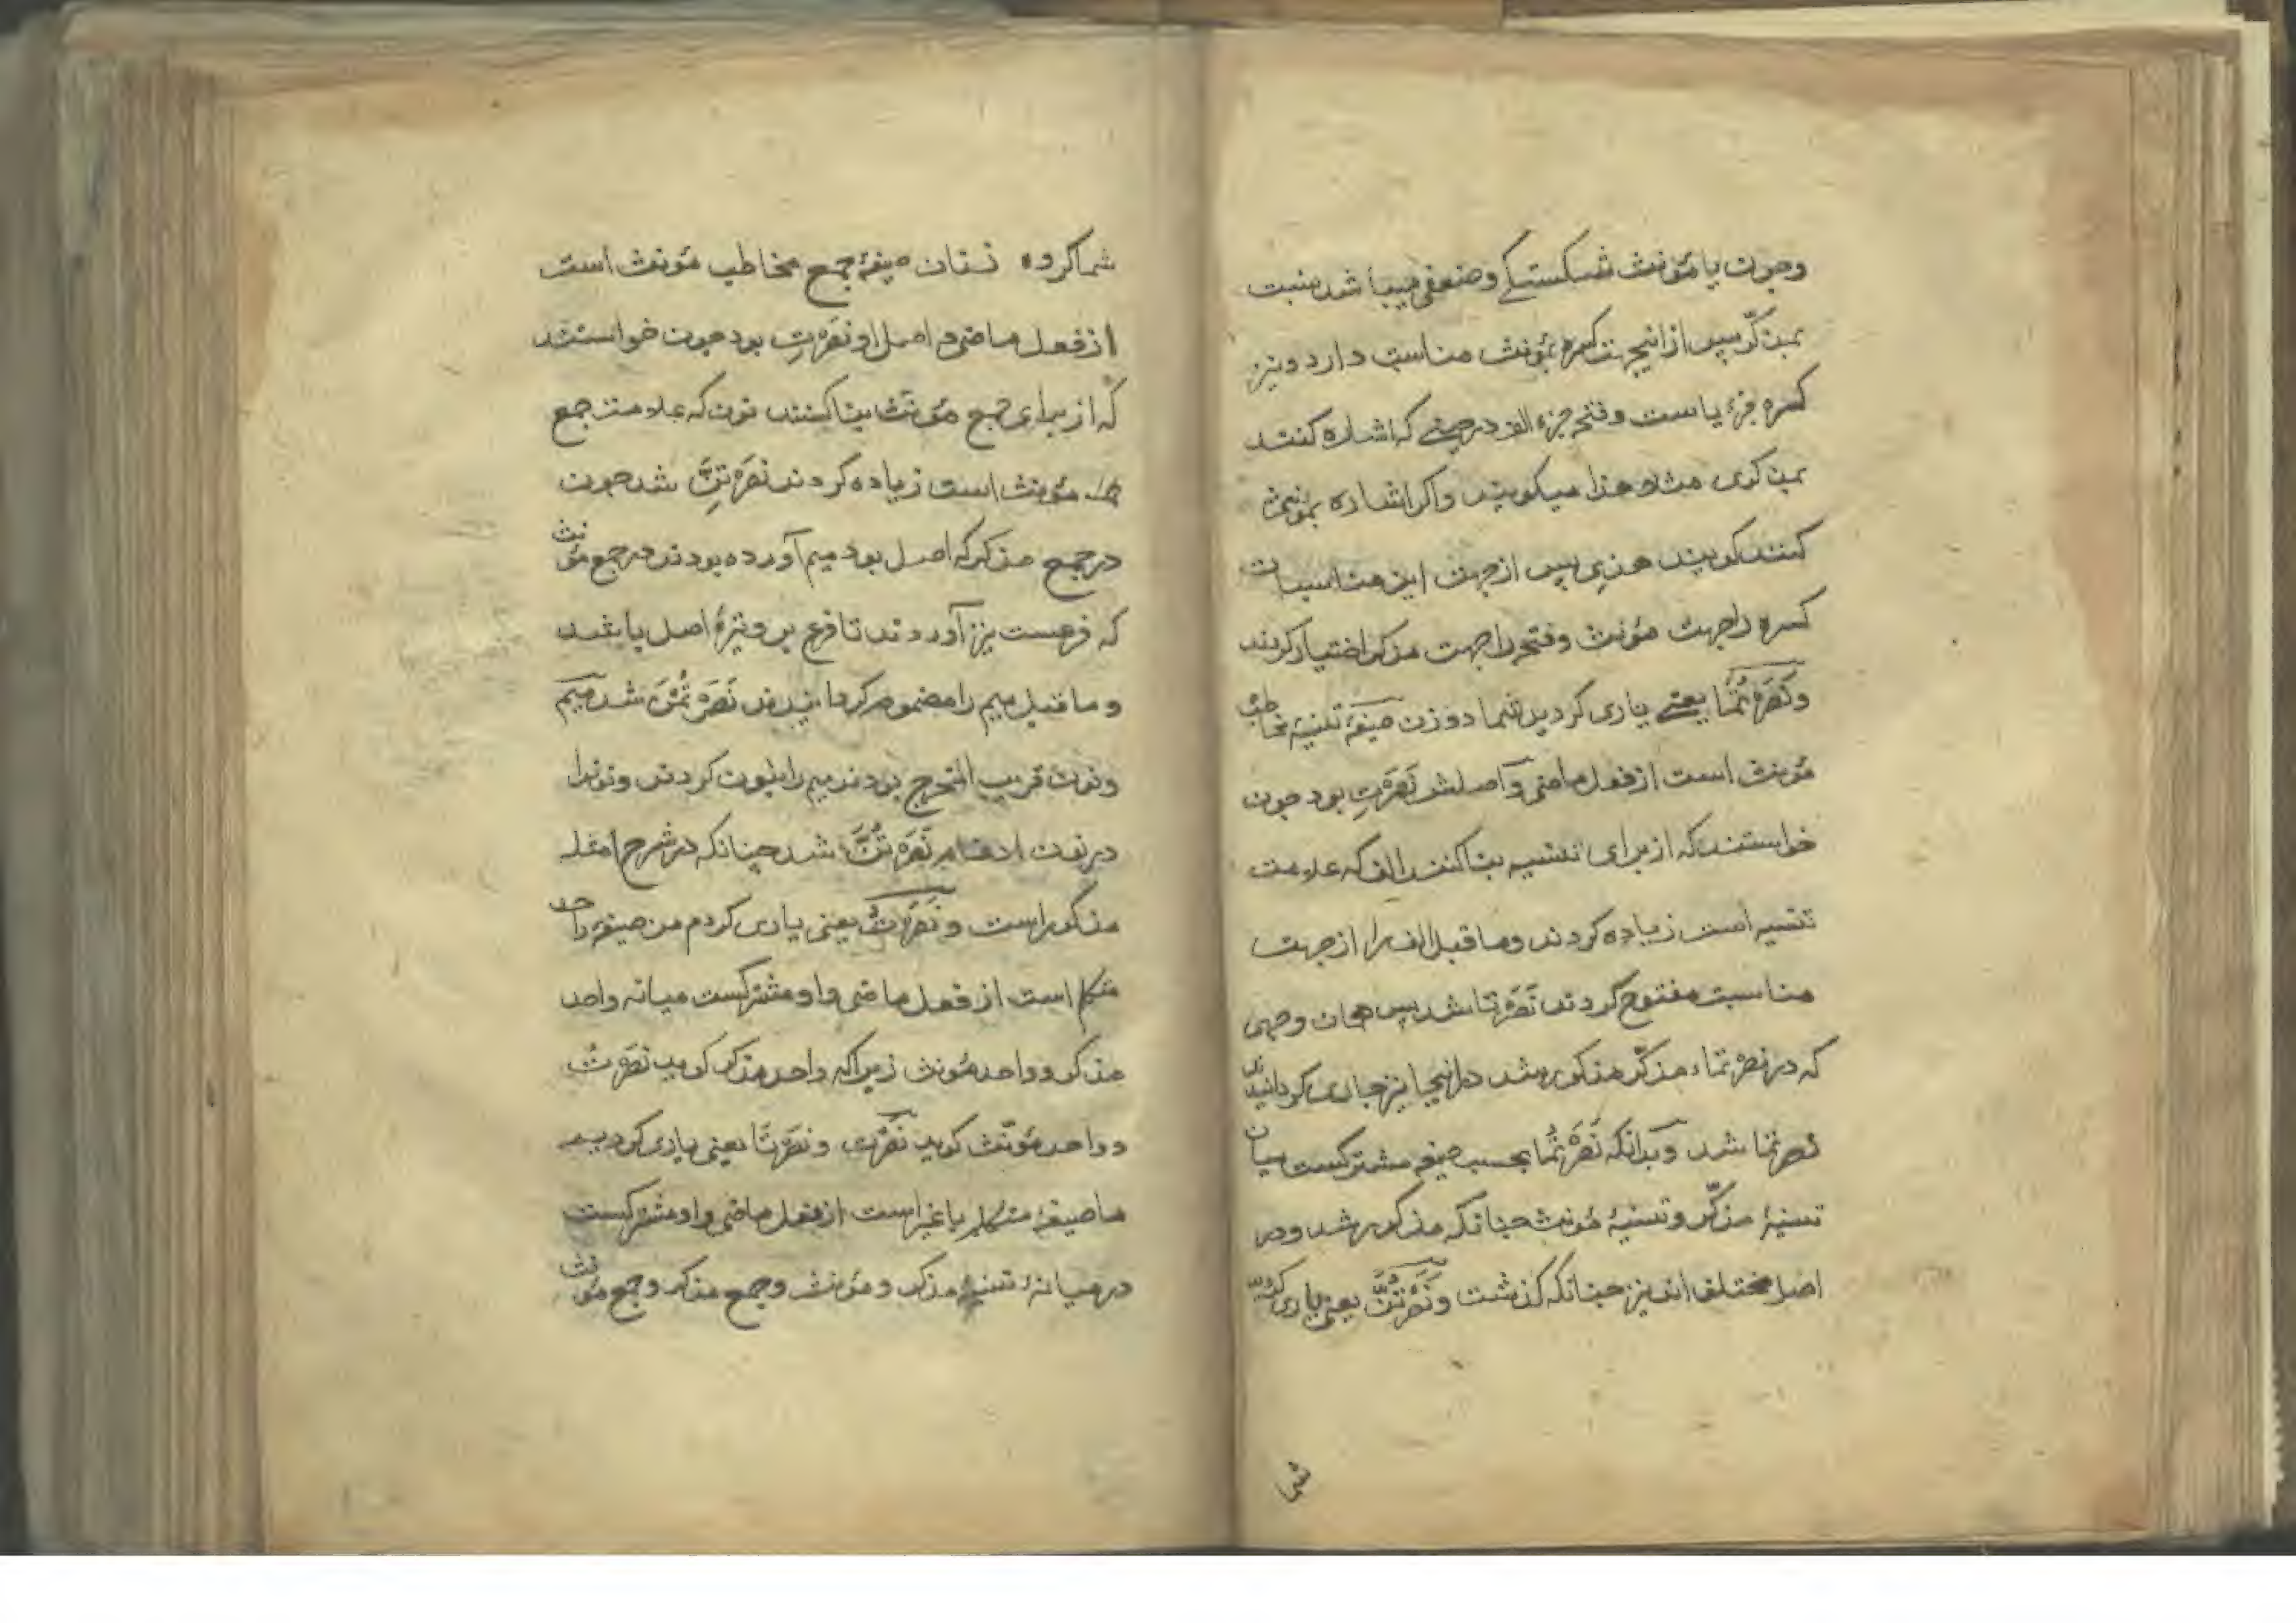 وچون با مؤنث شکستکے وضعفی میباشد بنسبت
بمذکّر پس ازانیجهت کسره بمؤنث مناسبت دارد ونیز
کسره جزء یا است وفتحه جزء الف درجینے که اشاره کنند
بمذکری مثلا هذا میکویند واکر اشاره بمؤنثی
کنند کویند هذی پس ازجهت این مناسبات
کسره راجهت مؤنث وفتحه راجهت مذکر اختیار کردند
وَنَصَرْتُمٰا یعنے یاری کردید شما دوزن صیغهٔ تثنیهٔ مخاطب
مؤنث است ازفعل ماضی واصلش نَصَرْتِ بود چون
خواستند که ازبرای تثنیه بنا کنند الف که علامت
تثنیه است زیاده کردند وماقبل الف را ازجهت
مناسبت مفتوح کردند نَصَرْتا شد پس همان وجهی
که در نصرتما مذکّر مذکور شد درانیجا نیز جاری کردانیدند
نصرتما شد وبدانکه نَصَرْتُمٰا بحسب صیغه مشترکست میان
تثنیهٔ مذکّر وتثنیهٔ مؤنث چنانکه مذکور شد ودر
اصل مختلف اند نیز چنانکه کذشت ونَصَرْتُنَّ یعنی یاری کردید
شما
شما کروه زنان صیغهٔ جمع مخاطب مؤنث است
ازفعل ماضی و اصل او نَصَرْتِ بود چون خواستند
که از برای جمع مؤنث بنا کنند نون که علامت جمع
مؤنث است زیاده کردند نَصَرْتِنَّ شد چون
درجمع مذکر که اصل بود میم آورده بودند درجمع مؤنث
که فرعست نیز آوردند تا فرع بر وتیرهٔ اصل باشد
و ماقبل میم را مضموم کردانیدند نَصَرْتُمْنَ شد میم
ونون قریب المخرج بودند میم را بنون کردند ونونرا
درنون ادغام نَصَرْتُنَّ شد چنانکه در شرح امثله
مذکور است و نَصَرْتُ یعنی یاری کردم من صیغهٔ واحد
متکلم است از فعل ماضی واو مشترکست میانه واحد
مذکر وواحد مؤنث زیراکه واحد مذکر کوید نصَرْتُ
و واحد مؤنّث کوید نَصَرْتُ و نَصَرْنَا یعنی یاری کردیم
ما صیغهٔ متکلم با غیر است ازفعل ماضی واو مشترکست
درمیانهٔ تثنیهٔ مذکر ومؤنث وجمع مذکر وجمع مؤنث